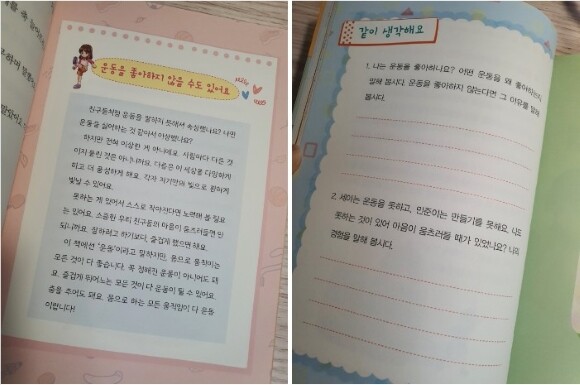 운동을 좋아하지 않을 수도 있어요
친구들처럼 운동을 잘하지 못해서 속상했나요? 나만
운동을 싫어하는 것 같아서 이상했나요?
하지만 전혀 이상한 게 아니에요. 사람마다 다른 것
이지 틀린 것은 아니니까요. 다름은 이 세상을 다양하게
하고 더 풍성하게 해요. 각자 자기만의 빛으로 환하게
빛날 수 있어요.
못하는 게 있어서 스스로 작아진다면 노력해 볼 필요
는 있어요. 소중한 우리 친구들의 마음이 움츠러들면 안
되니까요. 잘하려고 하기보다, 즐겁게 했으면 해요.
이 책에선 "운동"이라고 말하지만, 몸으로 움직이는
모든 것이 다 좋습니다. 꼭 정해진 운동이 아니어도 돼
요. 즐겁게 뛰어노는 모든 것이 다 운동이 될 수 있어요.
춤을 추어도 돼요. 몸으로 하는 모든 움직임이 다 운동
이랍니다!
같이 생각해요
1. 나는 운동을 좋아하나요? 어떤 운동을 왜 좋아하는지
말해 봅시다. 운동을 좋아하지 않는다면 그 이유를 말해
봅시다.
2. 세아는 운동을 못하고, 민준이는 만들기를 못해요. 나도
못하는 것이 있어 마음이 움츠러들 때가 있었나요? 나의
경험을 말해 봅시다.